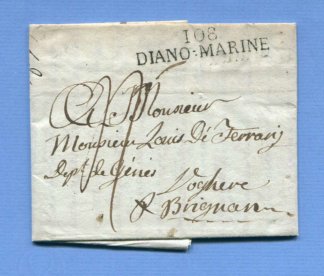 108
DIANO-MARINE
A Monsieur
Monsieur Louis De Ferrari
Dept de Gênes
Voghere
Brignan